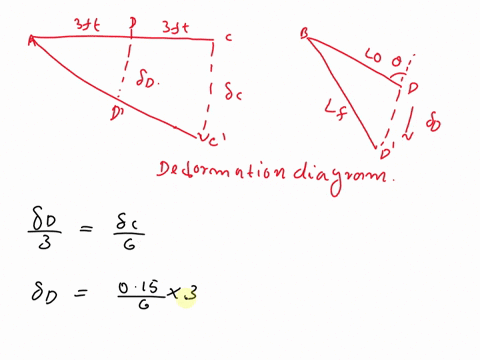 3ft D 3ft
A C
δD. δC
D'
C'
B
L0 θ
D
Lf δD
D'
Deformation diagram.
δD/3 = δC/6
δD = 0.15/6 × 3